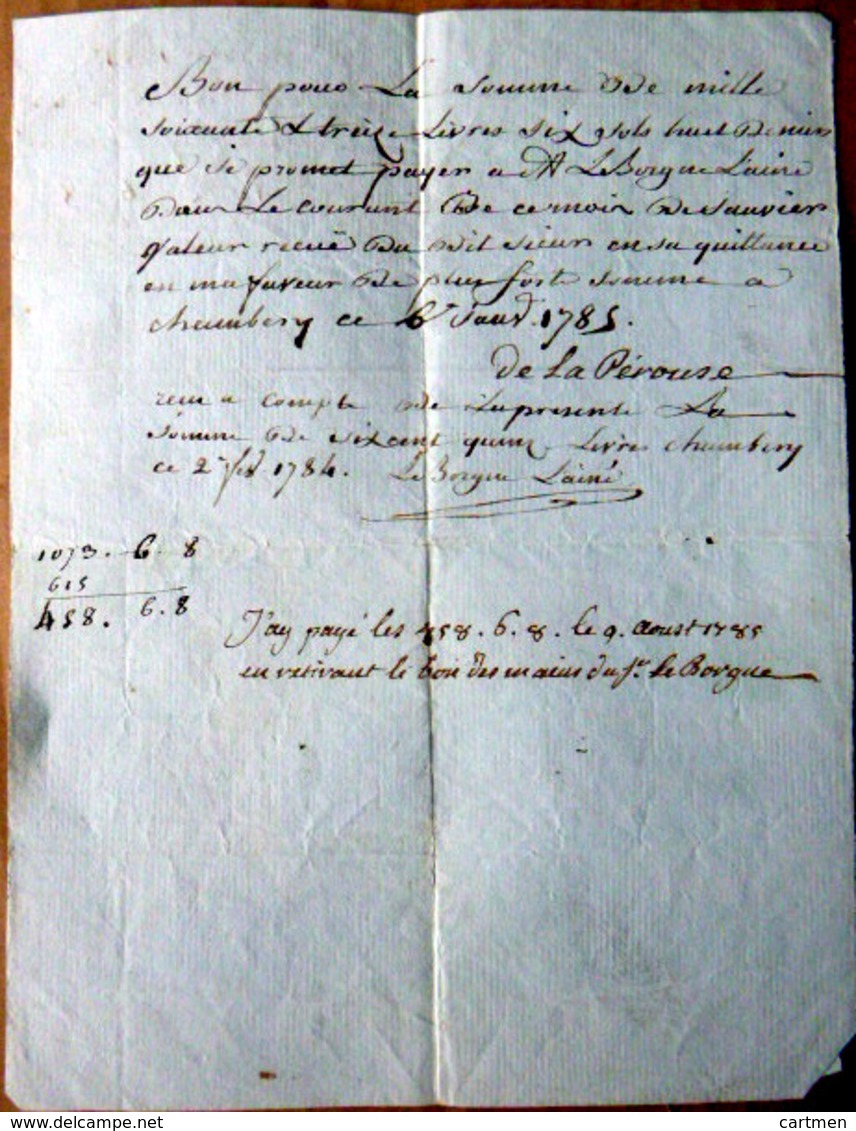 Bon pour La somme De mille
soixante & treize Livres six sols huit Deniers
que je promet payer a M LeBorgne L'ainé
Dans Le courant De ce mois De Janvier
Valeur recuë Du Dit sieur en sa quittance
en ma faveur De plus forte somme a
chambery ce 6 Janv. 1785.
de La Pérouse
recu a compte De la presente La
somme De six cent quinz Livres chambery
ce 2 fev 1784. Le Borgne L'ainé
1073. 6. 8
615
458. 6. 8
J'ay payé les 458. 6. 8. le 9. Aoust 1785
en retirant le bon des mains du Sr. Le Borgne
www.delcampe.net
cartmen